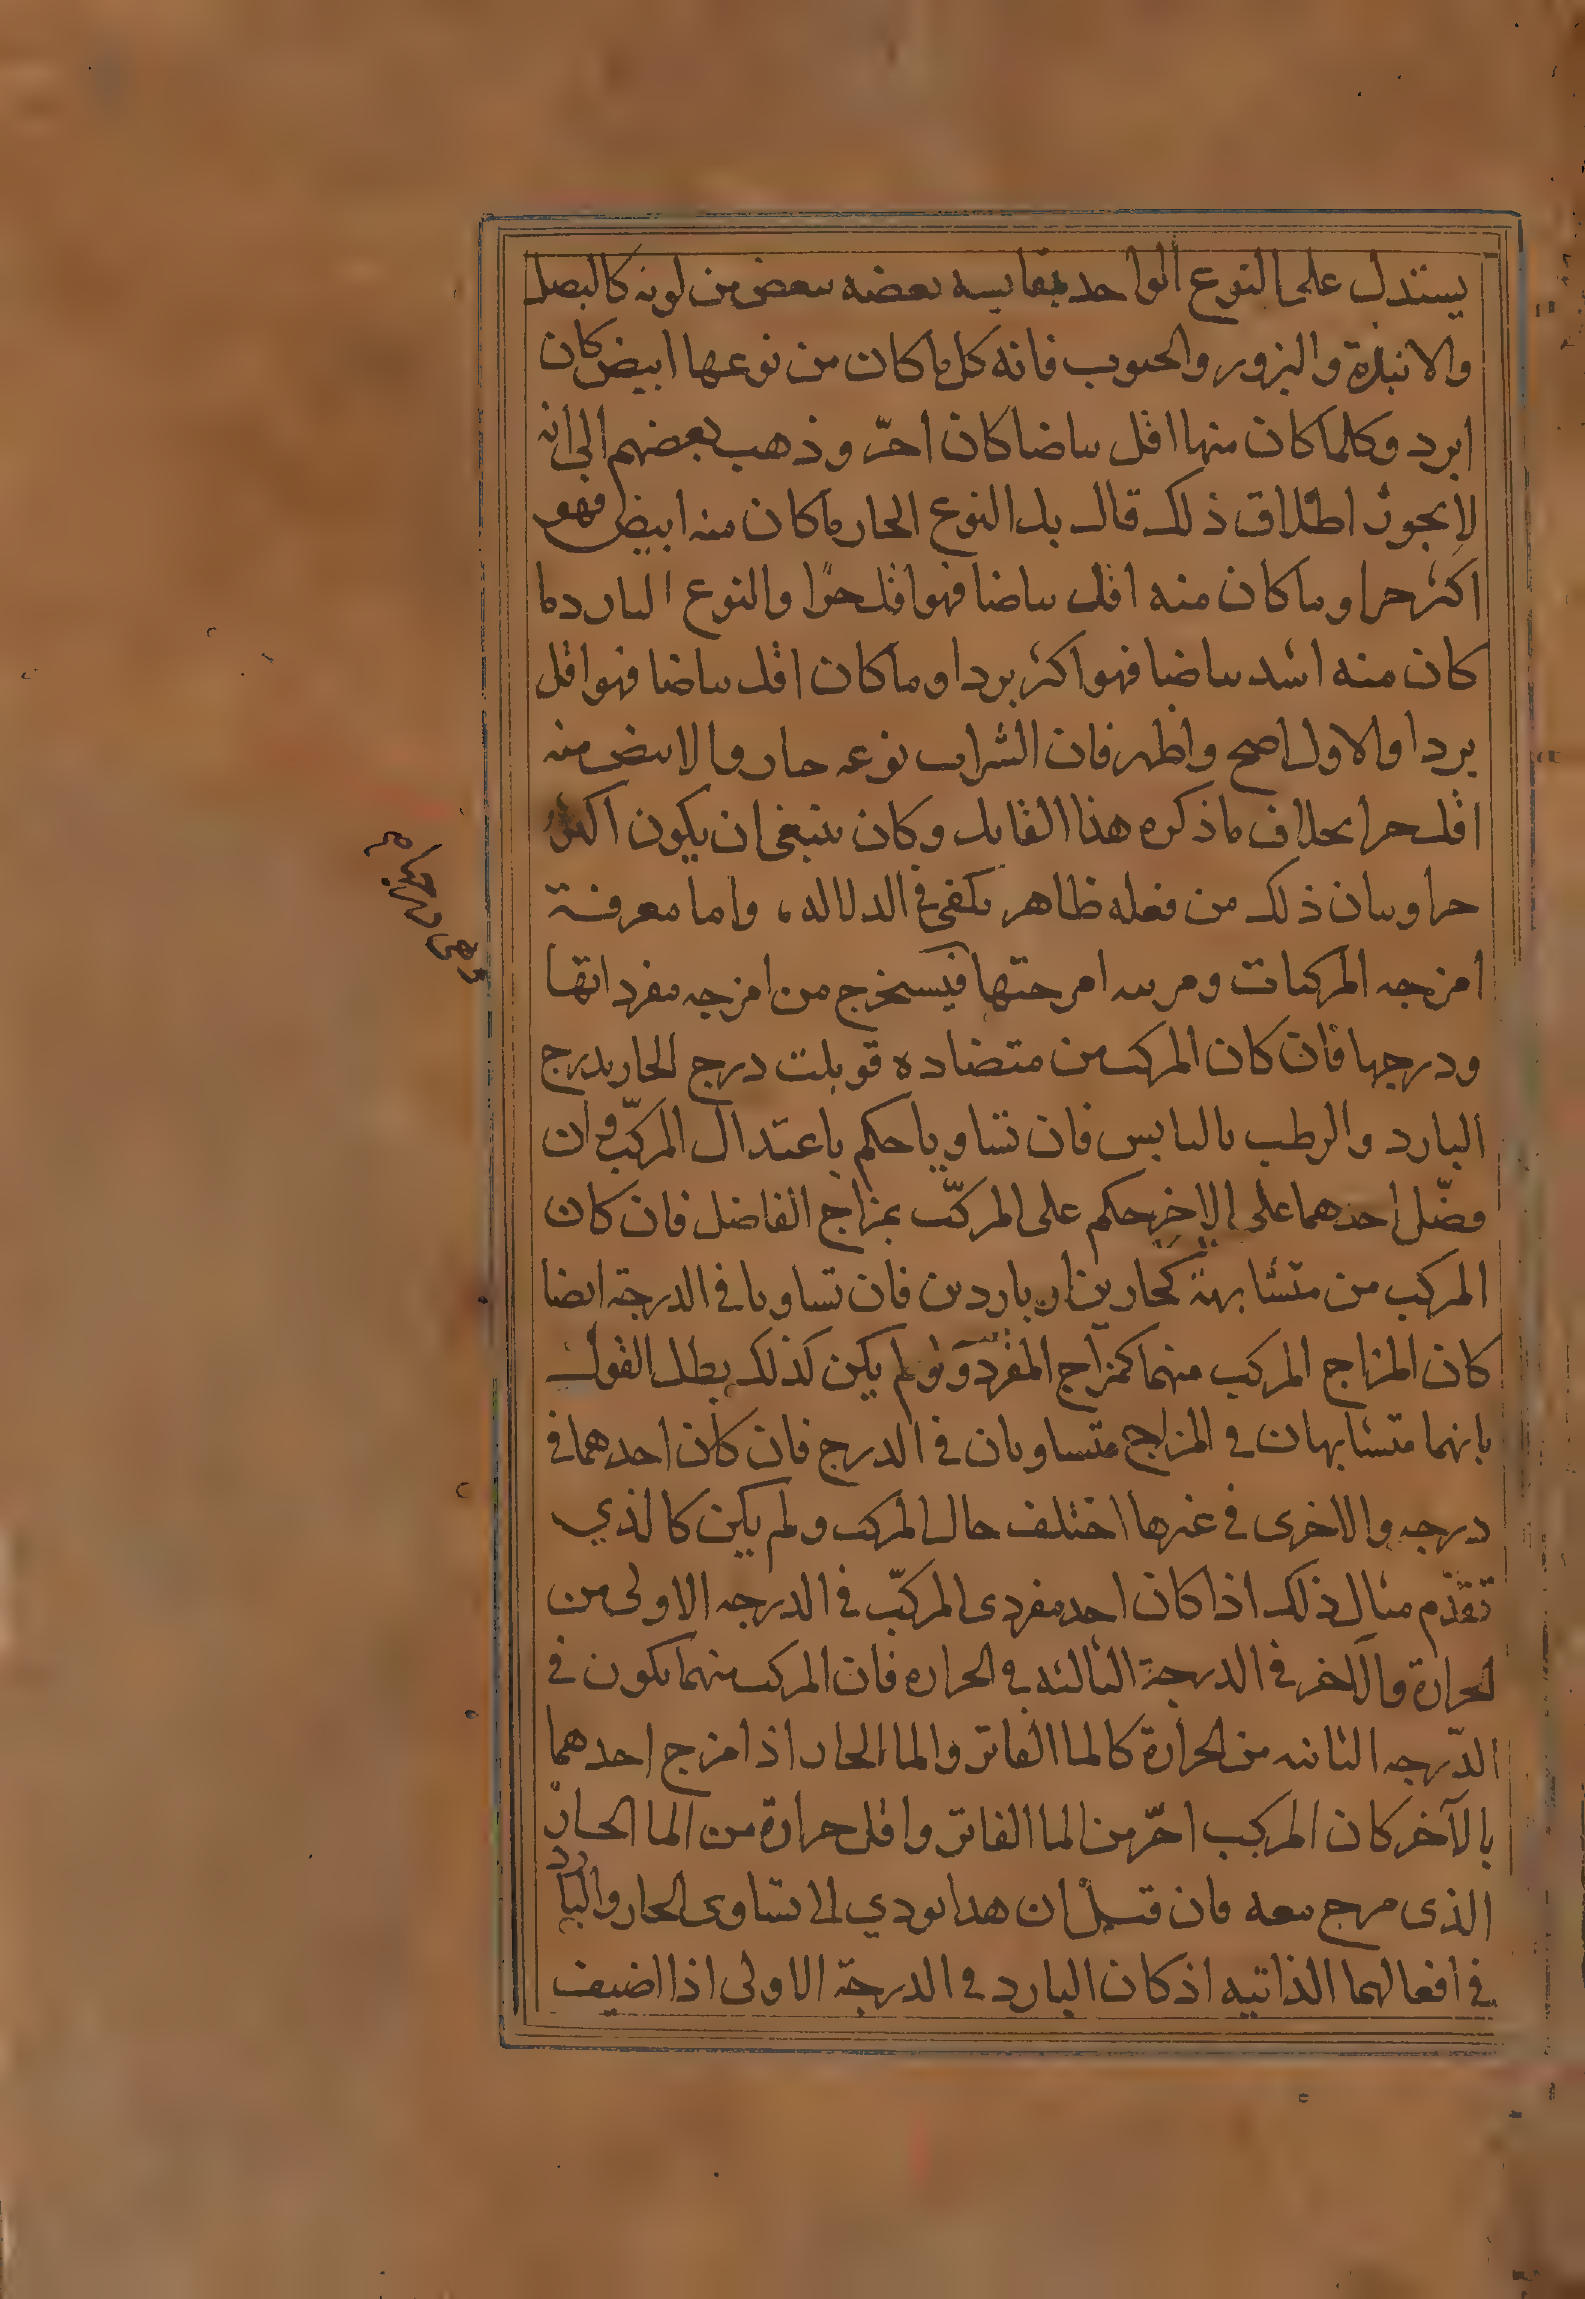 يستدل على النوع الواحد بمقايسه بعضه ببعض من لونه كالبصل
والانبذة والبزور والحبوب فانه كل ما كان من نوعها ابيض كان
ابرد وكلما كان منها اقل بياضا كان احرّ وذهب بعضهم الى انه
لا يجوز اطلاق ذلك قال بل النوع الحار ما كان منه ابيض فهو
اكثر حرا وما كان منه اقل بياضا فهو اقل حرّا والنوع البارد ما
كان منه اشد بياضا فهو اكثر بردا وما كان اقل بياضا فهو اقل
بردا والاول اصح واظهر فان الشراب نوعه حار والابيض منه
اقل حرا بخلاف ما ذكره هذا القايل وكان ينبغي ان يكون اكثر
حرا وبيان ذلك من فعله ظاهر يكفي في الدلاله، واما معرفة
امزجه المركبات ومرتبه امزجتها فيستخرج من امزجه مفرداتها
ودرجها فان كان المركب من متضاده قوبلت درج الحار بدرج
البارد والرطب باليابس فان تساويا حكم باعتدال المركّب وان
فضّل احدهما على الاخر حكم على المركّب بمزاج الفاضل فان كان
المركب من متشابهة كحارين او باردين فان تساويا في الدرجة ايضا
كان المزاج المركب منهما كمزاج المفرد ولو لم يكن كذلك بطل القول
بانهما متشابهان في المزاج متساويان في الدرج فان كان احدهما في
درجه والاخرى في غيرها اختلف حال المركب ولم يكن كالذي
تقدّم مثال ذلك اذا كان احد مفردى المركّب في الدرجه الاولى من
الحرارة والآخر في الدرجة الثالثه في الحراره فان المركب منهما يكون في
الدّرجه الثانيه من الحرارة كالما الفاتر والما الحار اذا مزج احدهما
بالآخر كان المركب احرّ من الما الفاتر واقل حرارة من الما الحار
الذى مزج معه فان قيل ان هذا يودي الا تساوى الحار والبارد
في افعالهما الذاتيه اذ كان البارد في الدرجة الاولى اذا اضيف